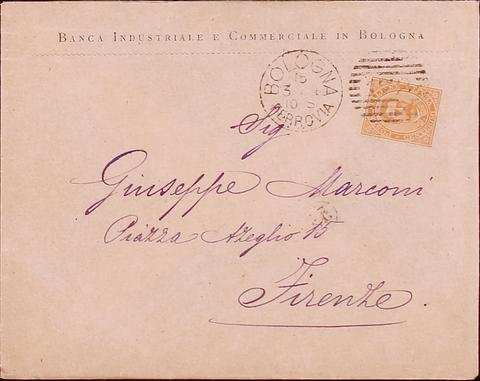 BANCA INDUSTRIALE E COMMERCIALE IN BOLOGNA
BOLOGNA
15
3
10 S
FERROVIA
Sig
Giuseppe Marconi
Piazza Azeglio 15
Firenze.